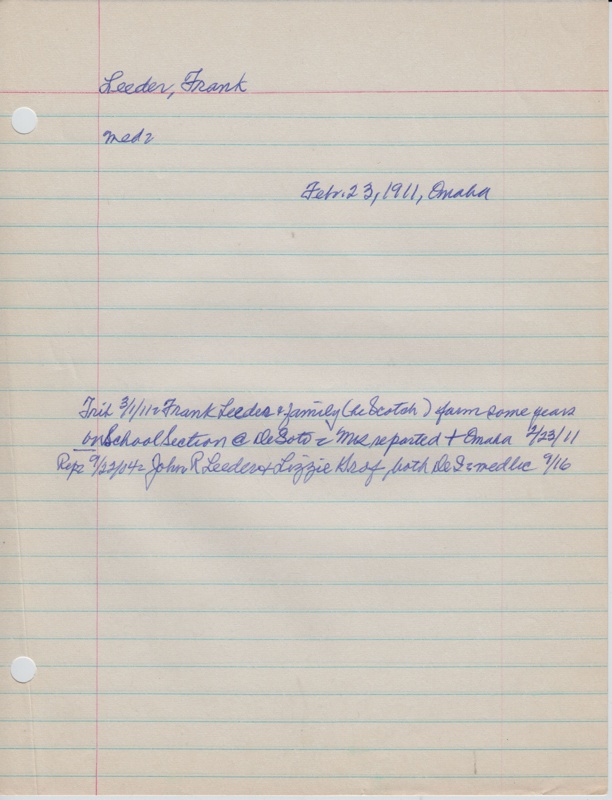 Leeder, Frank
med =
Feb. 23, 1911, Omaha
Trib 3/1/11 = Frank Leeder & family (he Scotch) farm some years
on School Section @ DeSoto = Mrs reported + Omaha 2/23/11
Rep = 9/22/04 = John R Leeder & Lizzie both DeS = med lic 9/16